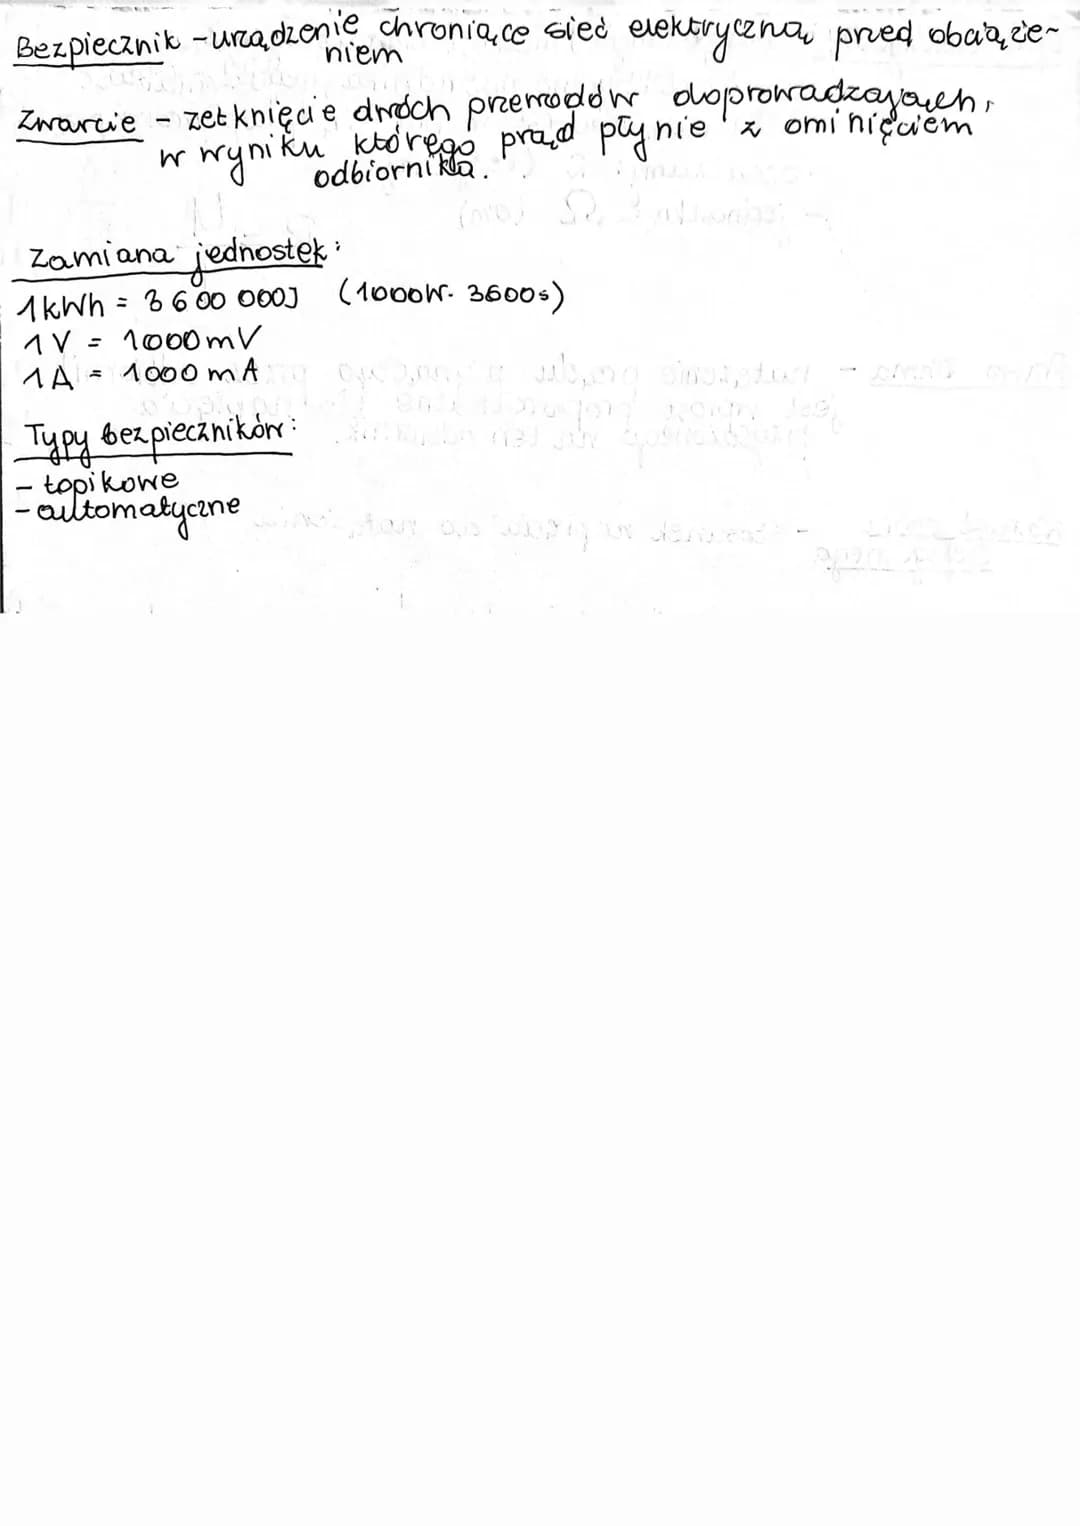 Bezpiecznik - urządzenie chroniące sieć elektryczną przed obciąże-
niem
Zwarcie - zetknięcie dwóch przewodów doprowadzających,
w wyniku którego prąd płynie z ominięciem
odbiornika.
Zamiana jednostek:
1kWh = 3 600 000J (1000W · 3600s)
1V = 1000mV
1A = 1000 mA
Typy bezpieczników:
- topikowe
- automatyczne